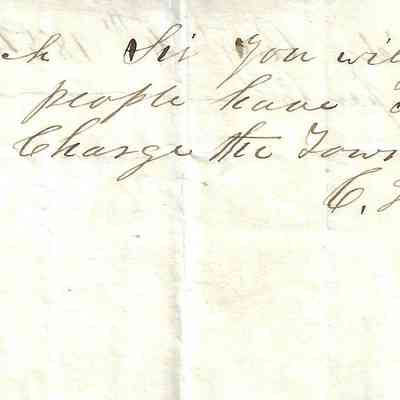 ck Sir You wil
people have
Charge the Town
C.